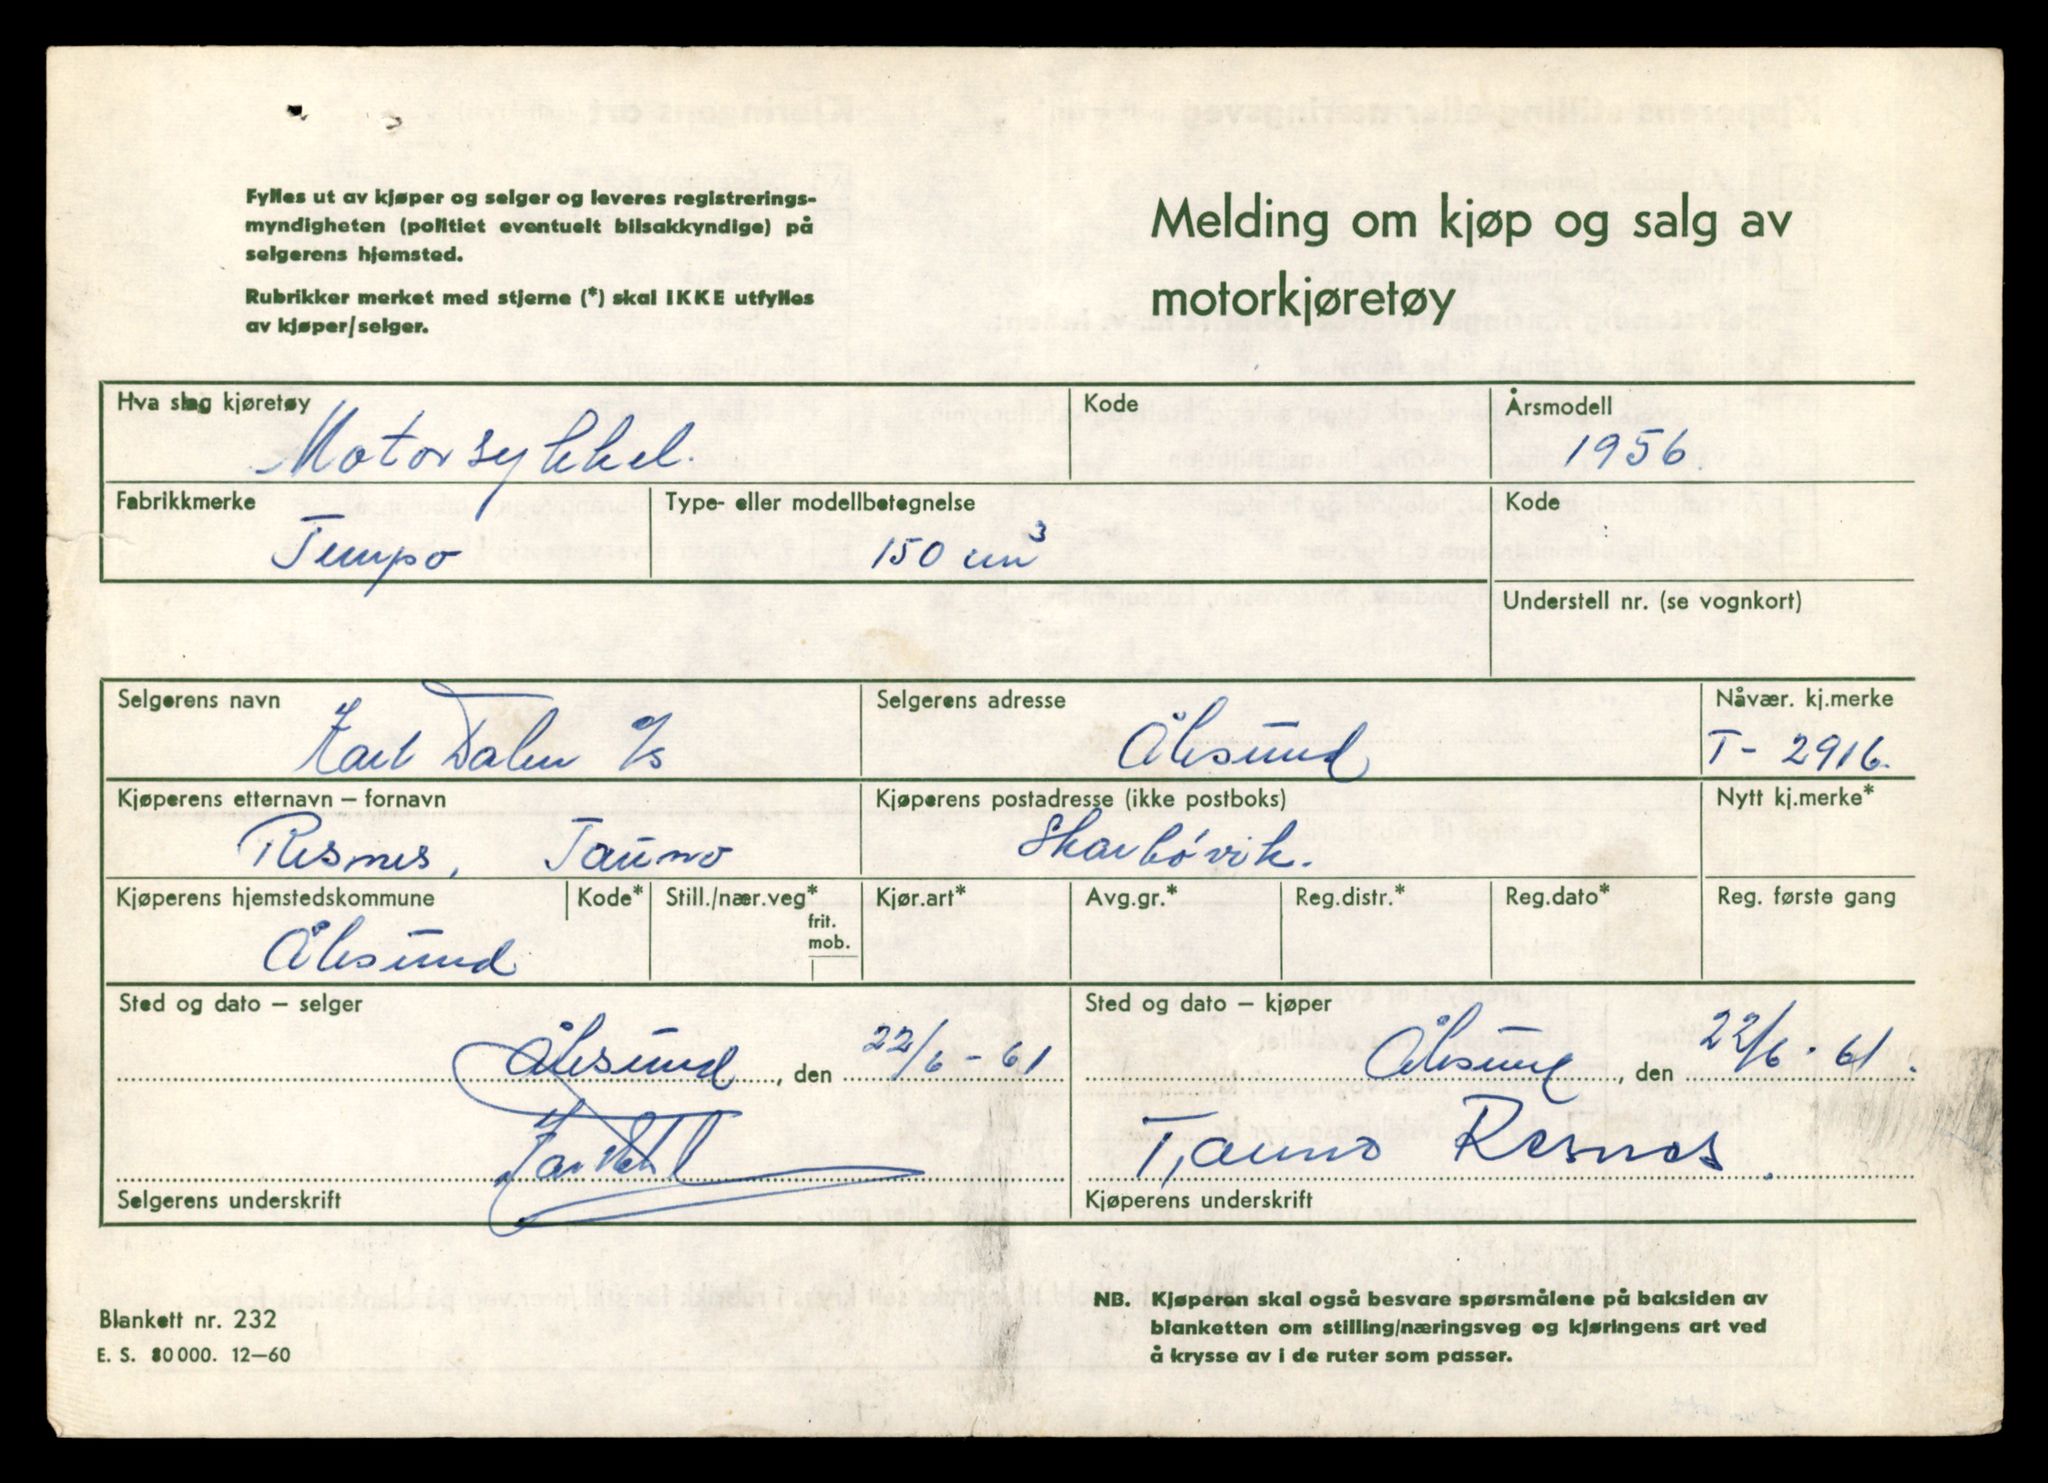 Fylles ut av kjøper og selger og leveres registrerings-
myndigheten (politiet eventuelt bilsakkyndige) på
selgerens hjemsted.
Rubrikker merket med stjerne (*) skal IKKE utfylles
av kjøper/selger.
Melding om kjøp og salg av
motorkjøretøy
Hva slag kjøretøy
Motorsykkel.
Kode
Årsmodell
1956.
Fabrikkmerke
Tempo
Type- eller modellbetegnelse
150 cm³
Kode
Understell nr. (se vognkort)
Selgerens navn
Karl Dalen a/s
Selgerens adresse
Ålesund
Nåvær. kj.merke
T- 2916.
Kjøperens etternavn – fornavn
Resnes, Tauno
Kjøperens postadresse (ikke postboks)
Skarbøvik.
Nytt kj.merke*
Kjøperens hjemstedskommune
Ålesund
Kode*
Still./nær.veg*
frit.
mob.
Kjør.art*
Avg.gr.*
Reg.distr.*
Reg.dato*
Reg. første gang
Sted og dato – selger
Ålesund, den 22/6 - 61
Selgerens underskrift
Sted og dato – kjøper
Ålesund, den 22/6 - 61.
Tauno Resnes.
Kjøperens underskrift
Blankett nr. 232
E. S. 80 000. 12–60
NB. Kjøperen skal også besvare spørsmålene på baksiden av
blanketten om stilling/næringsveg og kjøringens art ved
å krysse av i de ruter som passer.